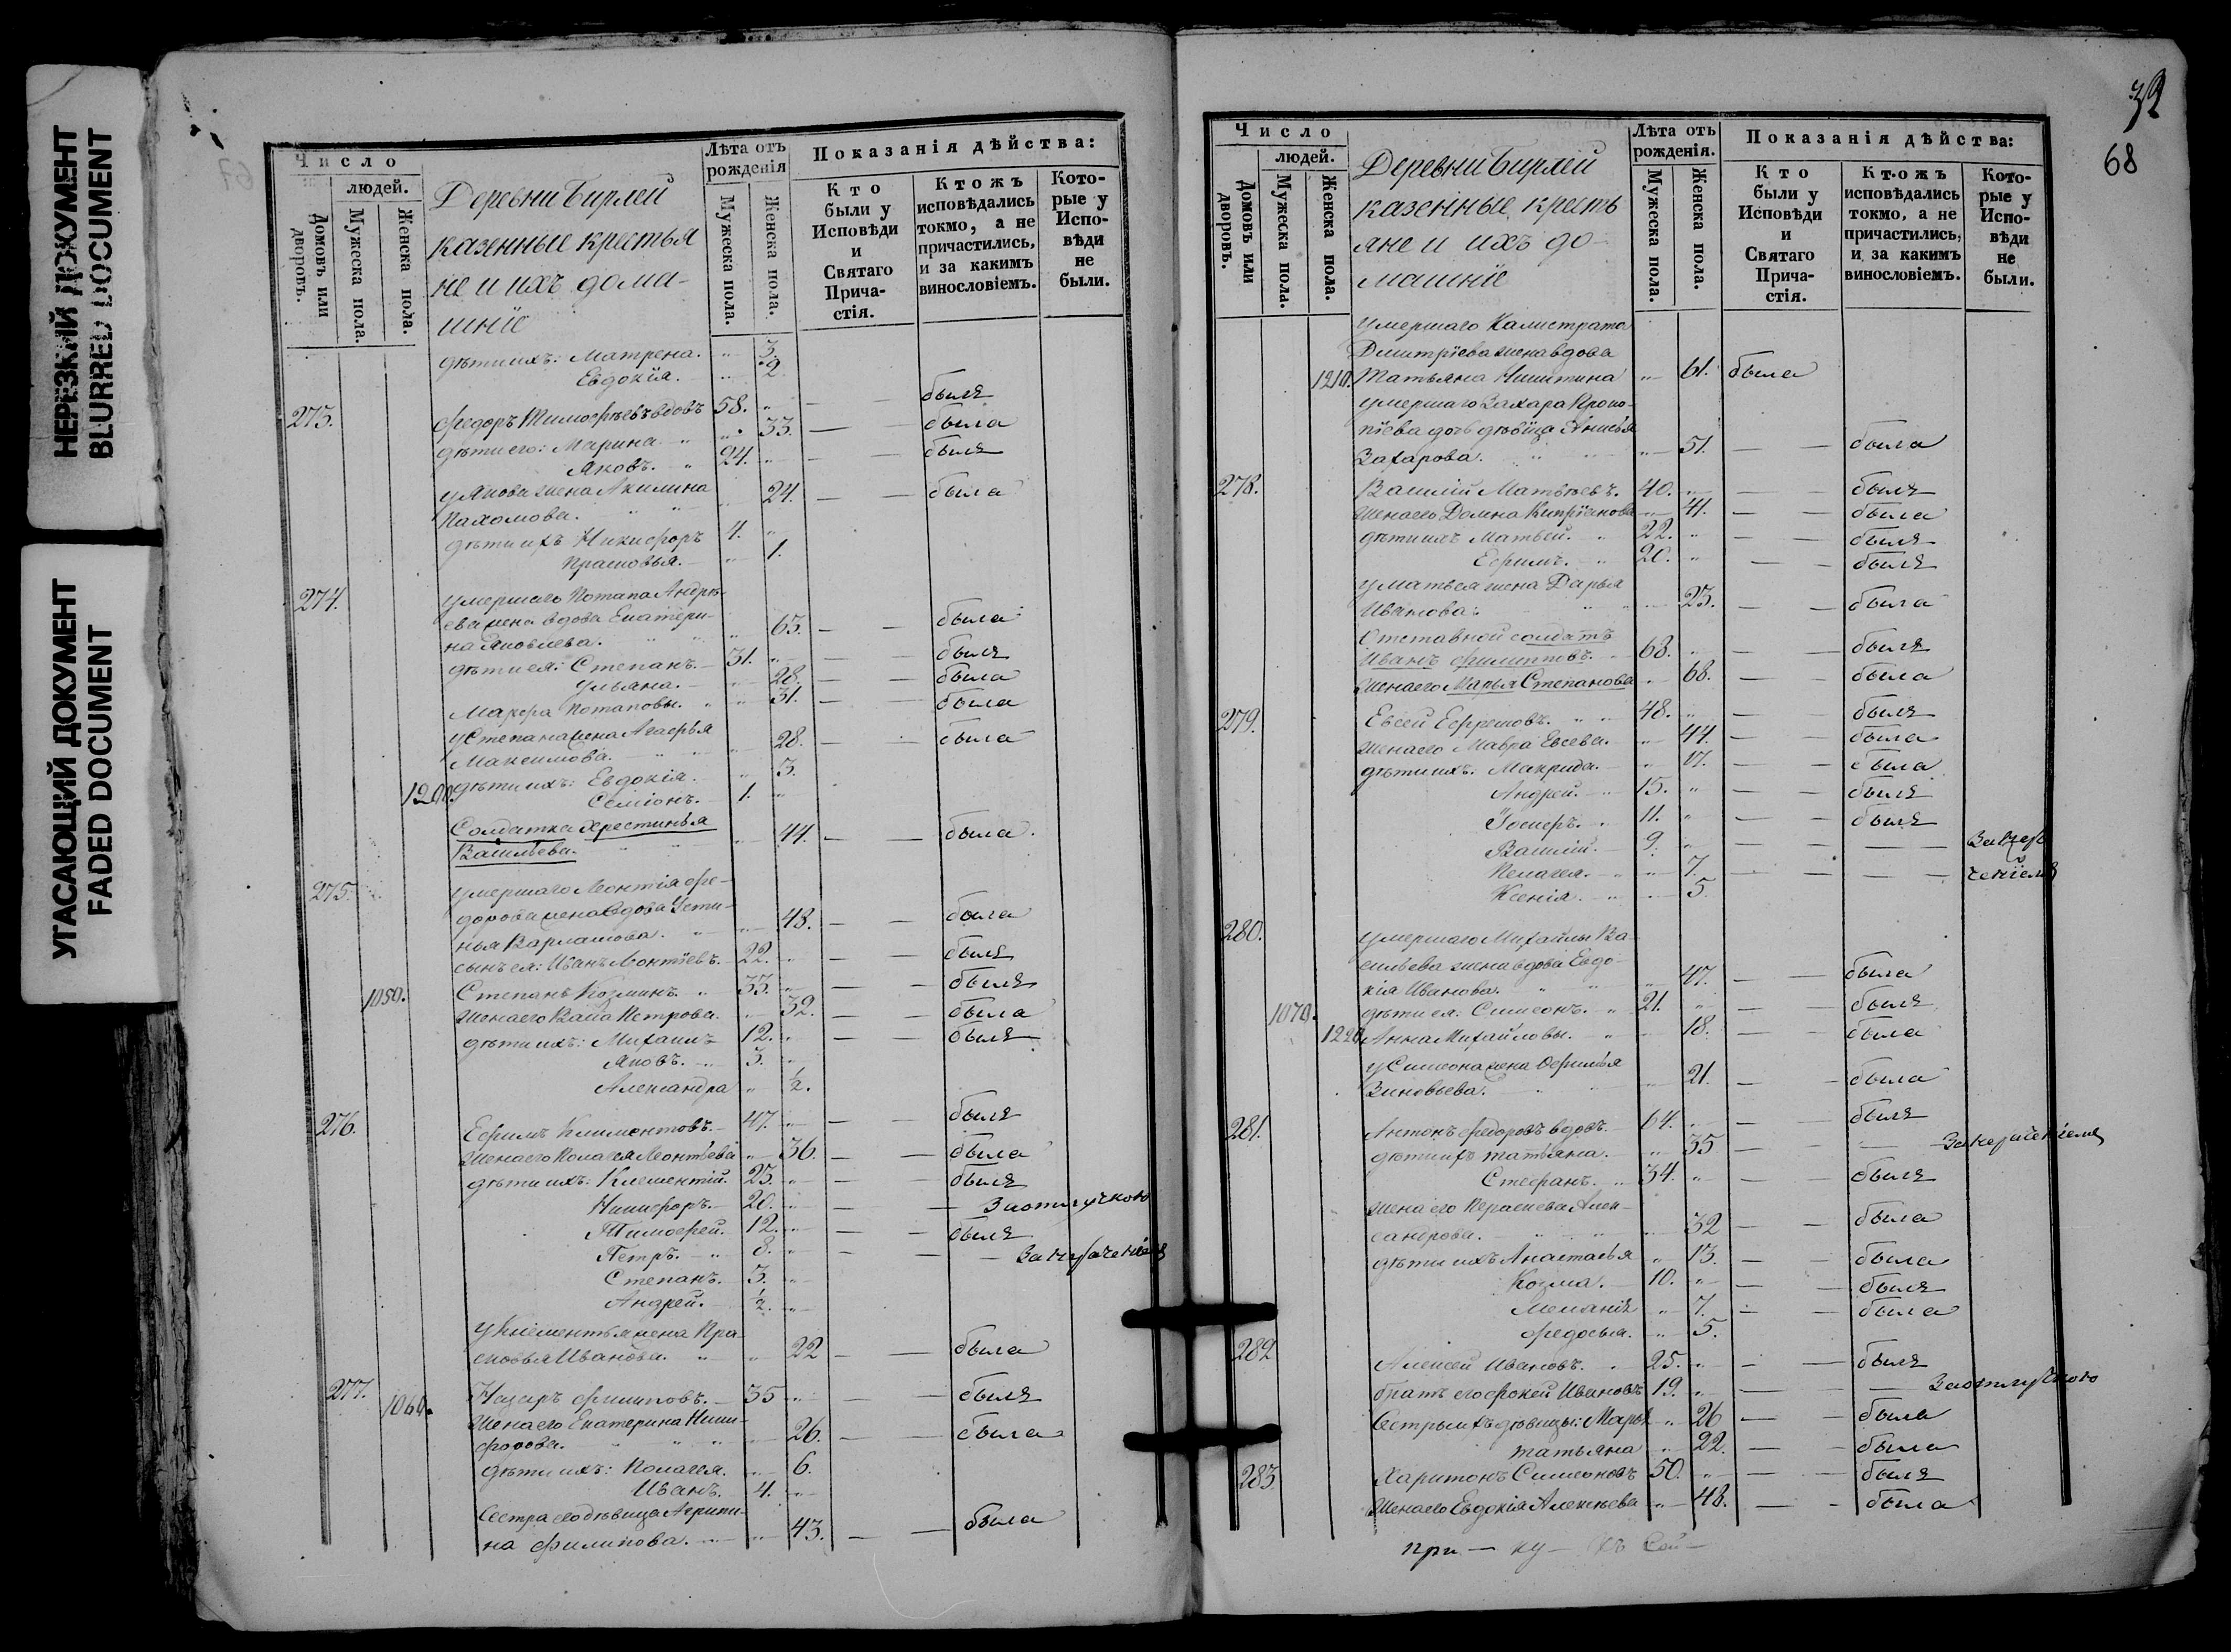 НЕРЕЗКИЙ ДОКУМЕНТ
BLURRED DOCUMENT
УГАСАЮЩИЙ ДОКУМЕНТ
FADED DOCUMENT
Число
людей.
Домовъ или дворовъ.
Мужеска пола.
Женска пола.
Деревни Бирлей
казенные крестья
не и ихъ дома-
шніе
Лѣта отъ рожденія
Мужеска пола.
Женска пола.
Показанія дѣйства:
Кто были у Исповѣди и Святаго Прича-стія.
Ктожъ исповѣдались токмо, а не причастились, и за какимъ винословіемъ.
Кото-рые у Испо-вѣди не были.
дѣти ихъ: Матрена. " 3.
Евдокія. " 2
273. Федоръ Тимофѣевъ вдовъ 58. " — — былъ
дѣти его: Марина " " 33. — — была
Яковъ. " 24. " — — былъ
у Якова жена Акилина
Пахомова. " 24. — — была
дѣти ихъ Никифоръ 4. "
Прасковья. " 1.
274. умершаго Потапа Андрѣ-
ева жена вдова Екатери-
на Яковлева. " 63. — — была
дѣти ея: Степанъ. 31. " — — былъ
Ульяна. " 28. — — была
Марфа Потаповы. " 31. — — была
у Степана жена Агафья
Максимова. " 28. — — была
1200. дѣти ихъ: Евдокія. " 3.
Семіонъ. 1. "
Солдатка Христинья
Васильева. " 44. — — была
275. умершаго Леонтія Фе-
дорова жена вдова Усти-
нья Варламова. " 48. — — была
сынъ ея: Иванъ Леонтіевъ. 22. " — — былъ
1050. Степанъ Козминъ. " 33. " — — былъ
жена его Васа Петрова. " 32. — — была
дѣти ихъ: Михаилъ 12. " — — былъ
Яковъ. 3. "
Александра " ½.
276. Ефимъ Климонтовъ. 47. " — — былъ
жена его Пелагея Леонтьева " 36. — — была
дѣти ихъ: Клементій. 23. " — — былъ
Никифоръ. 20. " — — За отлучкою
Тимофей. 12. " — — былъ
Петръ. " 8. " — — За нераченіемъ
Степанъ. 3. "
Андрей. ½. "
у Клементья жена Пра-
сковья Иванова. " " 22 — — была
277. 1060. Назаръ Филиповъ. 35 " — — былъ
жена его Екатерина Ники-
форова. " " 26. — — была
дѣти ихъ: Пелагея. " 6.
Иванъ. 4. "
Сестра его дѣвица Агрипи-
на Филипова. " 43. — — была
68
Число
людей.
Домовъ или дворовъ.
Мужеска пола.
Женска пола.
Деревни Бирлей
казенные кресть
яне и ихъ до-
машніе
Лѣта отъ рожденія.
Мужеска пола.
Женска пола.
Показанія дѣйства:
Кто были у Исповѣди и Святаго Прича-стія.
Ктожъ исповѣдались токмо, а не причастились, и за какимъ винословіемъ.
Кото-рые у Испо-вѣди не были.
умершаго Калистрата
Дмитріева жена вдова
1210. Татьяна Никитина " 61. была
умершаго Захара Проко-
піева дочь дѣвица Анисья
Захарова. " " 51. — — была
278. Василій Матвѣевъ. 40. " — — былъ
жена его Домна Кипріанова " 41. — — была
дѣти ихъ Матвѣй. " 22. " — — былъ
Ефимъ. " 20. " — — былъ
у Матвѣя жена Дарья
Иванова. " " 23. — — была
Отставной солдатъ
Иванъ Филипповъ. 68. " — — былъ
жена его Марья Степанова " 68. — — была
279. Евсей Ефремовъ. " 48. " — — былъ
жена его Мавра Евсева. " 44. — — была
дѣти ихъ: Макрида. " 17. — — была
Андрей. 15. " — — былъ
Іосифъ. 11. " — — былъ
Василій. 9. " — — За нера
Пелагея. " 7. — — ченіемъ
Ксенія. " 5.
280. умершаго Михайлы Ва-
сильева жена вдова Евдо-
кія Иванова. " " 47. — — была
1070. дѣти ея: Симеонъ. 21. " — — былъ
1220. Анна Михайловы. " 18. — — была
у Симеона жена Офимья
Зиновьева. " 21. — — была
281. Антонъ Федоровъ вдовъ. 64. " — — былъ
дѣти ихъ Татьяна. " 35 — — За нераченіемъ
Стефанъ. 34. " — — былъ
жена его Параскева Алек-
сандрова. " " 32 — — была
дѣти ихъ Анастасья " 13. — — была
Козма. 10. " — — былъ
Меланія " 7. — — была
Федосья. " 5.
282 Алексей Ивановъ. 25. " — — былъ
братъ его Фокей Ивановъ 19. " — — За отлучкою
Сестры ихъ дѣвицы: Марья " 26 — — была
Татьяна " 22. — — была
283 Харитонъ Симеоновъ 50. " — — былъ
жена его Евдокія Алексѣева " 48. — — была